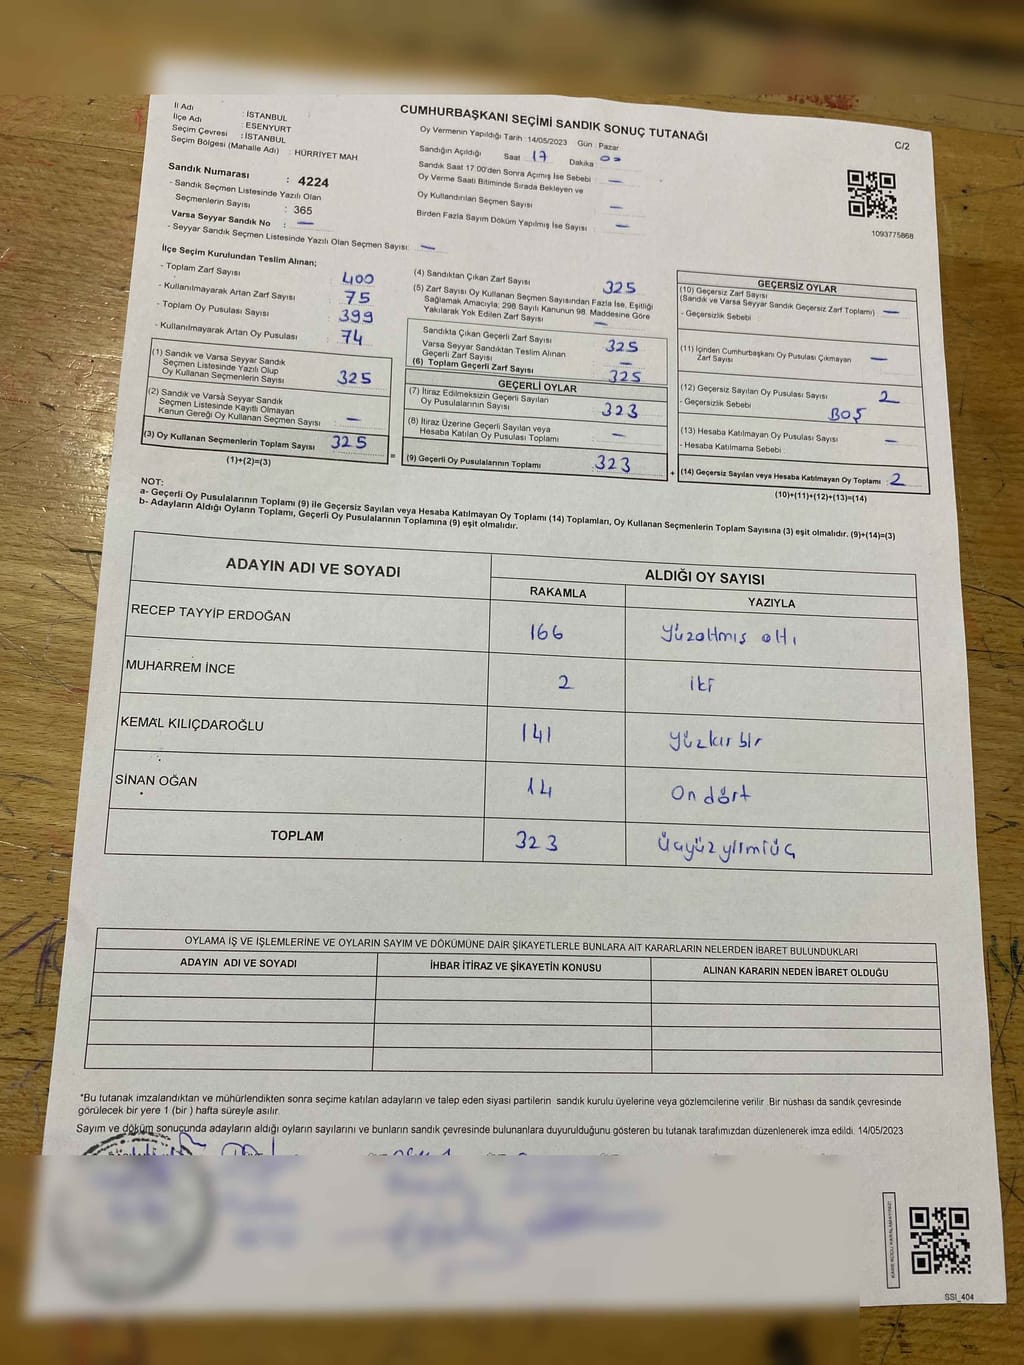 İl Adı : İSTANBUL
İlçe Adı : ESENYURT
Seçim Çevresi : İSTANBUL
Seçim Bölgesi (Mahalle Adı) : HÜRRİYET MAH
Sandık Numarası : 4224
- Sandık Seçmen Listesinde Yazılı Olan
Seçmenlerin Sayısı : 365
Varsa Seyyar Sandık No : —
- Seyyar Sandık Seçmen Listesinde Yazılı Olan Seçmen Sayısı: —
CUMHURBAŞKANI SEÇİMİ SANDIK SONUÇ TUTANAĞI
Oy Vermenin Yapıldığı Tarih : 14/05/2023 Gün : Pazar
Sandığın Açıldığı Saat 17 Dakika 00
Sandık Saat 17.00'den Sonra Açımış İse Sebebi : —
Oy Verme Saati Bitiminde Sırada Bekleyen ve
Oy Kullandırılan Seçmen Sayısı : —
Birden Fazla Sayım Döküm Yapılmış İse Sayısı : —
C/2
1093775868
İlçe Seçim Kurulundan Teslim Alınan;
- Toplam Zarf Sayısı 400
- Kullanılmayarak Artan Zarf Sayısı 75
- Toplam Oy Pusulası Sayısı 399
- Kullanılmayarak Artan Oy Pusulası 74
(1) Sandık ve Varsa Seyyar Sandık
Seçmen Listesinde Yazılı Olup
Oy Kullanan Seçmenlerin Sayısı 325
(2) Sandık ve Varsa Seyyar Sandık
Seçmen Listesinde Kayıtlı Olmayan
Kanun Gereği Oy Kullanan Seçmen Sayısı —
(3) Oy Kullanan Seçmenlerin Toplam Sayısı 325
(1)+(2)=(3)
(4) Sandıktan Çıkan Zarf Sayısı 325
(5) Zarf Sayısı Oy Kullanan Seçmen Sayısından Fazla İse, Eşitliği
Sağlamak Amacıyla; 298 Sayılı Kanunun 98. Maddesine Göre
Yakılarak Yok Edilen Zarf Sayısı —
Sandıkta Çıkan Geçerli Zarf Sayısı 325
Varsa Seyyar Sandıktan Teslim Alınan
Geçerli Zarf Sayısı —
(6) Toplam Geçerli Zarf Sayısı 325
GEÇERLİ OYLAR
(7) İtiraz Edilmeksizin Geçerli Sayılan
Oy Pusulalarının Sayısı 323
(8) İtiraz Üzerine Geçerli Sayılan veya
Hesaba Katılan Oy Pusulası Toplamı —
= (9) Geçerli Oy Pusulalarının Toplamı 323
GEÇERSİZ OYLAR
(10) Geçersiz Zarf Sayısı
(Sandık ve Varsa Seyyar Sandık Geçersiz Zarf Toplamı) —
- Geçersizlik Sebebi
(11) İçinden Cumhurbaşkanı Oy Pusulası Çıkmayan
Zarf Sayısı —
(12) Geçersiz Sayılan Oy Pusulası Sayısı 2
- Geçersizlik Sebebi BOŞ
(13) Hesaba Katılmayan Oy Pusulası Sayısı —
- Hesaba Katılmama Sebebi
+ (14) Geçersiz Sayılan veya Hesaba Katılmayan Oy Toplamı 2
(10)+(11)+(12)+(13)=(14)
NOT:
a- Geçerli Oy Pusulalarının Toplamı (9) ile Geçersiz Sayılan veya Hesaba Katılmayan Oy Toplamı (14) Toplamları, Oy Kullanan Seçmenlerin Toplam Sayısına (3) eşit olmalıdır. (9)+(14)=(3)
b- Adayların Aldığı Oyların Toplamı, Geçerli Oy Pusulalarının Toplamına (9) eşit olmalıdır.
ADAYIN ADI VE SOYADI ALDIĞI OY SAYISI
RAKAMLA YAZIYLA
RECEP TAYYİP ERDOĞAN 166 Yüzaltmış altı
MUHARREM İNCE 2 iki
KEMAL KILIÇDAROĞLU 141 Yüzkırbir
SİNAN OĞAN 14 On dört
TOPLAM 323 üçyüzyirmiüç
OYLAMA İŞ VE İŞLEMLERİNE VE OYLARIN SAYIM VE DÖKÜMÜNE DAİR ŞİKAYETLERLE BUNLARA AİT KARARLARIN NELERDEN İBARET BULUNDUKLARI
ADAYIN ADI VE SOYADI İHBAR İTİRAZ VE ŞİKAYETİN KONUSU ALINAN KARARIN NEDEN İBARET OLDUĞU
*Bu tutanak imzalandıktan ve mühürlendikten sonra seçime katılan adayların ve talep eden siyasi partilerin sandık kurulu üyelerine veya gözlemcilerine verilir .Bir nüshası da sandık çevresinde
görülecek bir yere 1 (bir ) hafta süreyle asılır.
Sayım ve döküm sonucunda adayların aldığı oyların sayılarını ve bunların sandık çevresinde bulunanlara duyurulduğunu gösteren bu tutanak tarafımızdan düzenlenerek imza edildi. 14/05/2023
KAREKODU KARALAMAYINIZ!
SSI_404